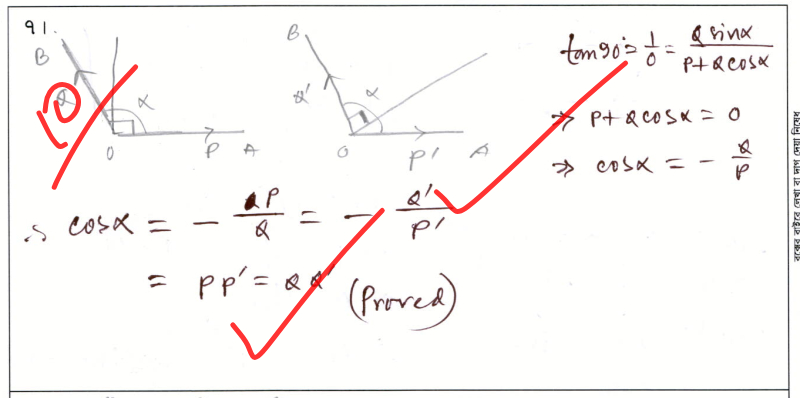 91.
B
Q
α
O
P
A
10
B
Q'
α
O
P'
A
tan90° = 1/0 = Q sinα / P + Q cosα
⇒ P + Q cosα = 0
⇒ cosα = - Q/P
∴ cosα = - P/Q = - Q'/P'
= PP' = QQ' (Proved)
বক্সের বাইরে লেখা বা দাগ দেয়া নিষেধ